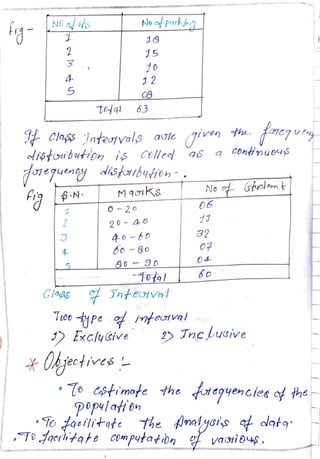 Fig -
No of Hs No of Parking
1 18
2 15
3 10
4 12
5 08
Total 63
If Class Intervals are given the frequency
distribution is Called as a continuous
frequency distribution -.
Fig
S.N. Marks No of Student
1 0-20 06
2 20-40 11
3 40-60 32
4 60-80 07
5 80-90 04
Total 60
Class of Interval
Two type of interval
1) Exclusive 2) Inclusive
* Objectives :-
• To estimate the frequencies of the
population
• To facilitate The Analysis of data.
• To facilitate computation of various.